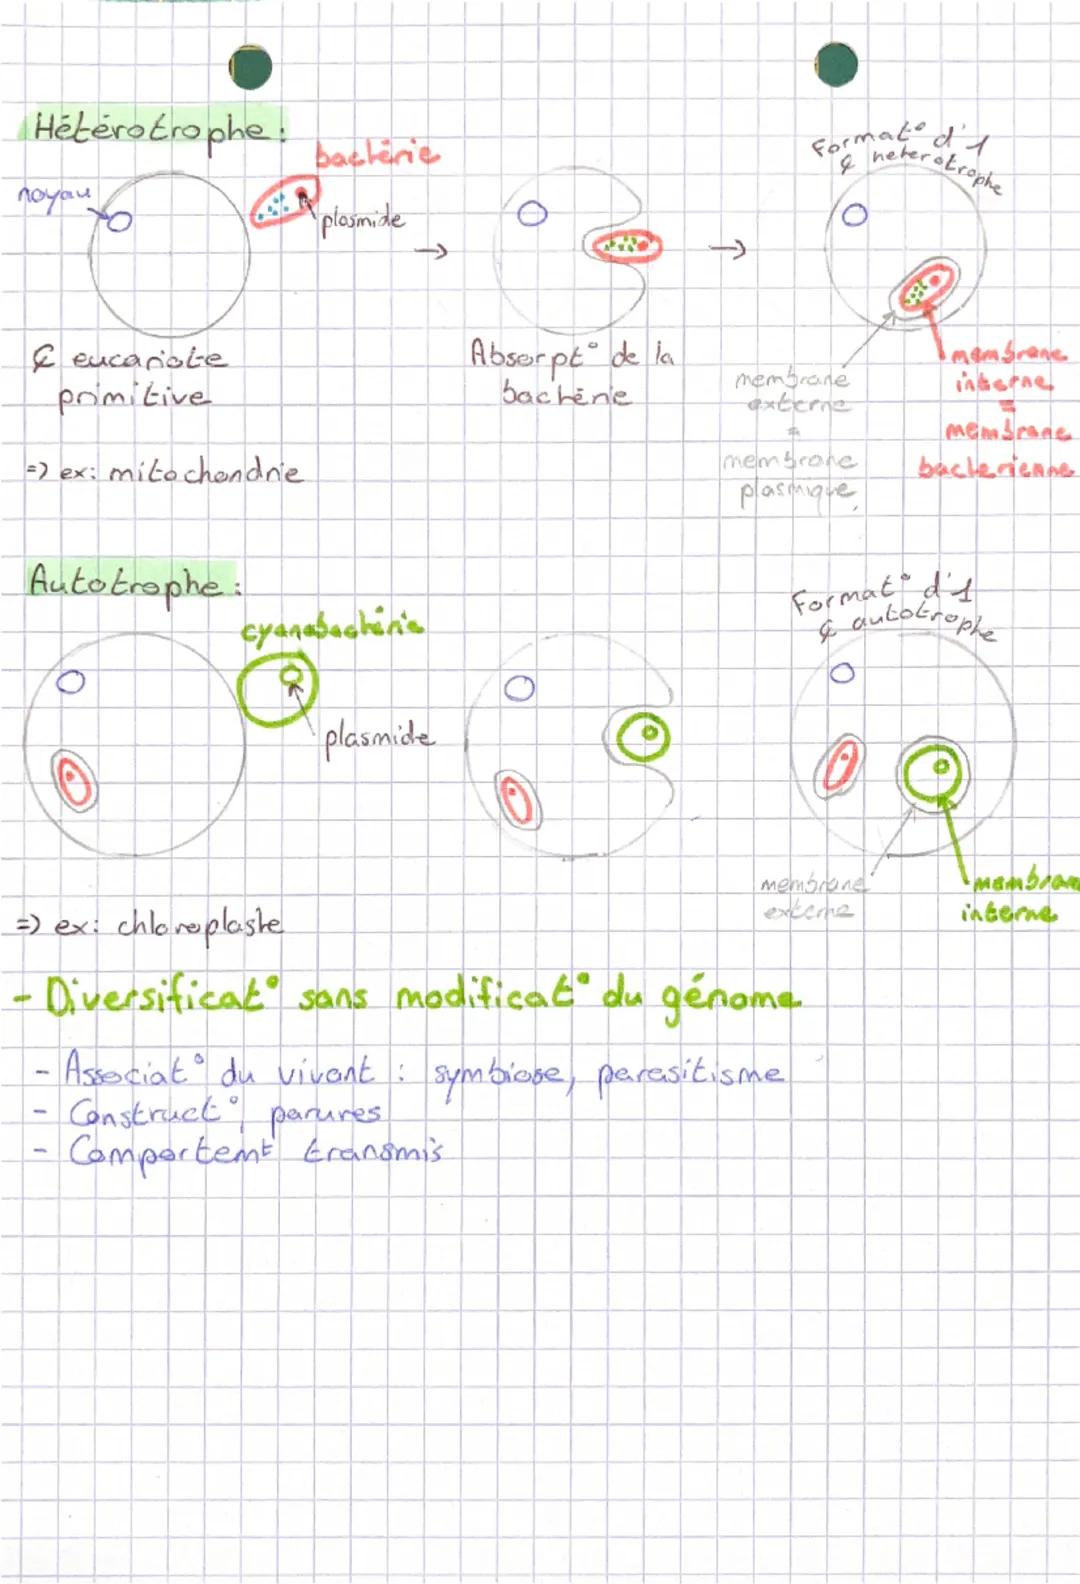 Hétérotrophe :
bactérie
noyau
plasmide
→
→
Format° d'1
¢ heterotrophe
¢ eucariote
primitive
Absorpt° de la
bactérie
membrane
externe
=
membrane
plasmique
membrane
interne
=
membrane
bacterienne
=> ex: mitochondrie
Autotrophe :
cyanobactérie
plasmide
Format° d'1
¢ autotrophe
membrane
externe
membran
interne
=> ex: chloroplaste
- Diversificat° sans modificat° du génome
- Associat° du vivant : symbiose, parasitisme
- Construct°, parures
- Comportemt transmis